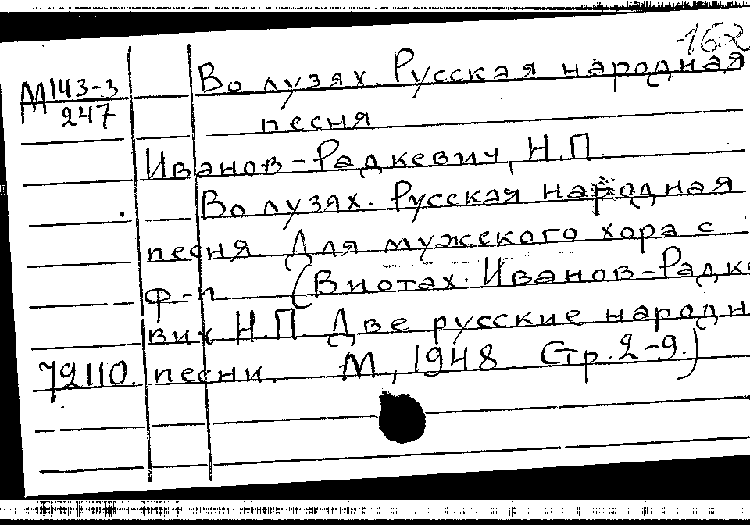 -162
М143-3
247
Во лузях. Русская народная
песня
Иванов-Радкевич, Н.П.
Во лузях. Русская народная
песня Для мужского хора с
ф-п. (В нотах. Иванов-Радке
вич Н.П Две русские народн
72110 песни. М., 1948 Стр. 2-9.)